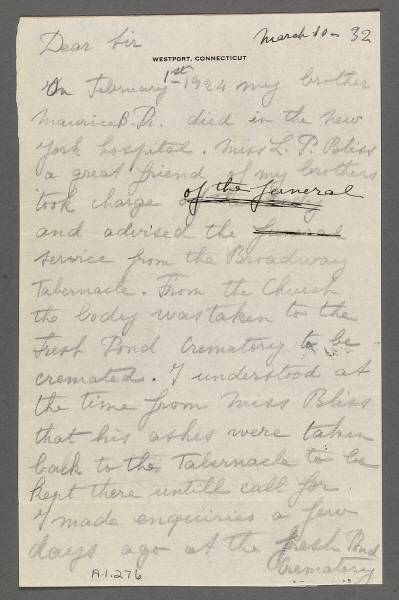 Dear Sir
March 10 - 32
WESTPORT, CONNECTICUT
On February 1st - 1924 my brother
Maurice B. Pr. died in the New
York hospital. Miss L. P. Bliss
a great friend of my brothers
took charge of the funeral
and advised the funeral
service from the Broadway
Tabernacle. From the Church
the body was taken to the
Fresh Pond Crematory to be
cremated. I understood at
the time from Miss Bliss
that his ashes were taken
back to the Tabernacle to be
kept there untill call for.
I made enquiries a few
days ago at the Fresh Pond
Crematory
A.1.276